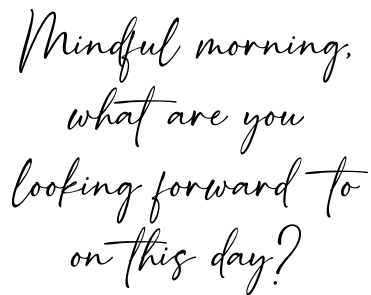 Mindful morning,
what are you
looking forward to
on this day?